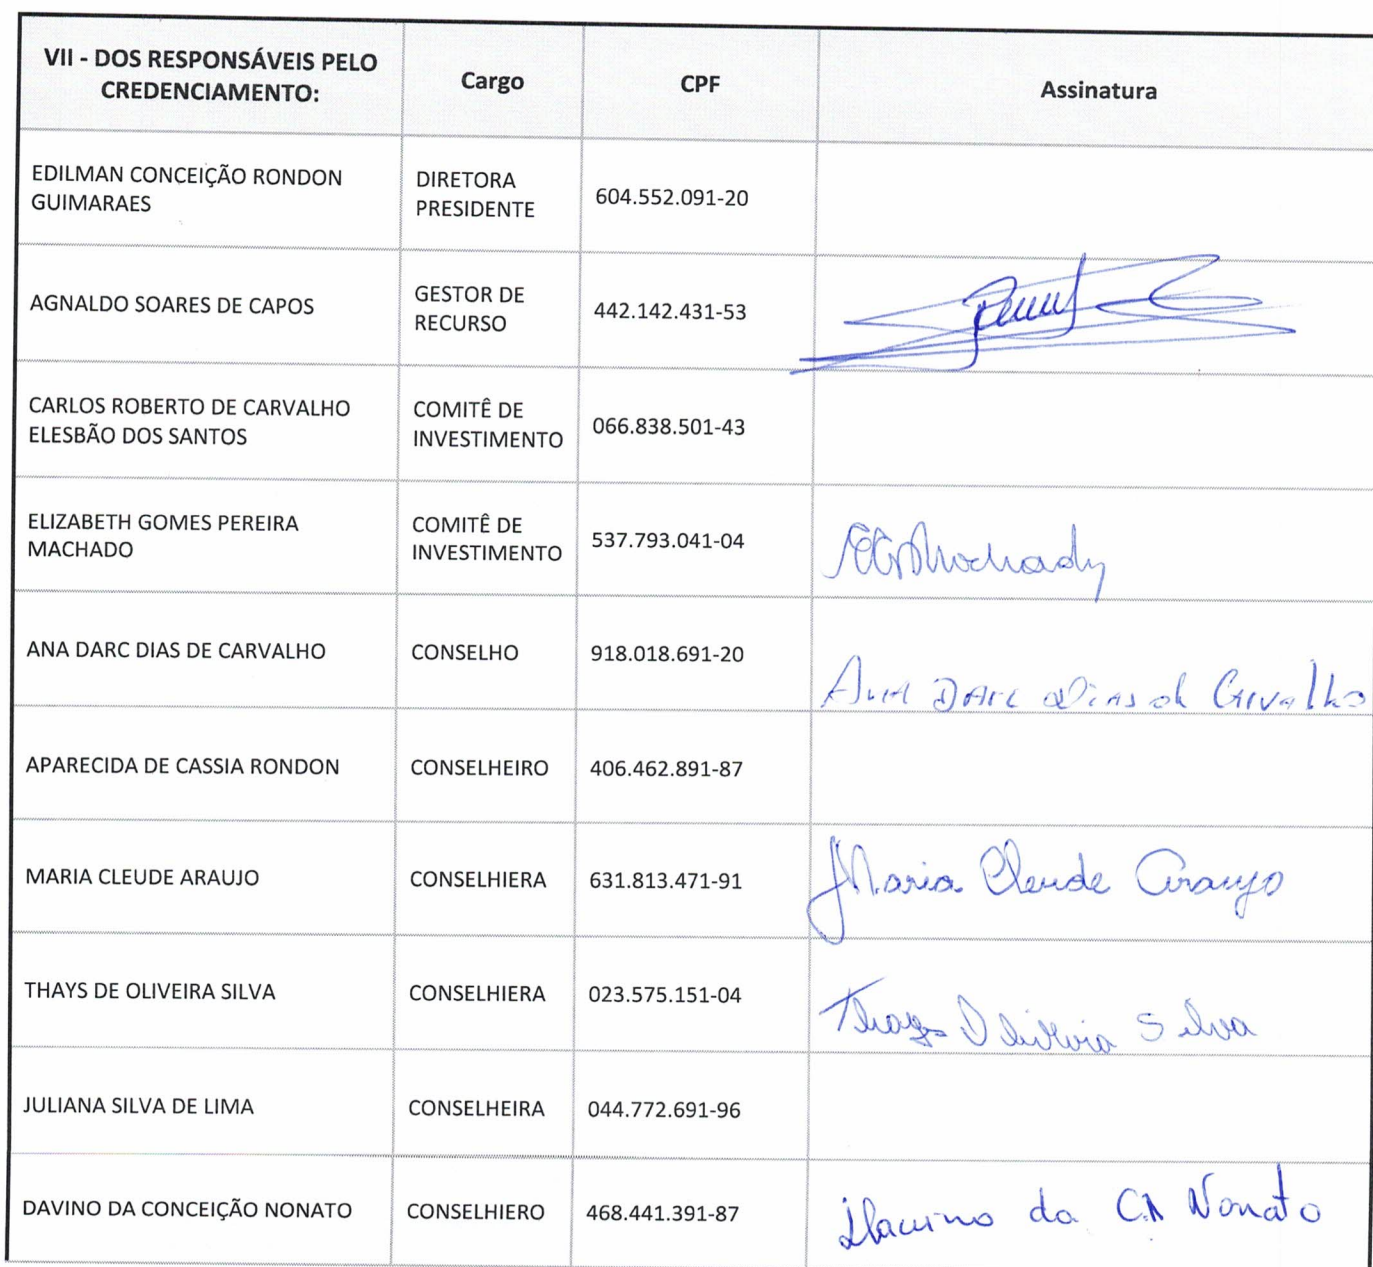 VII - DOS RESPONSÁVEIS PELO
CREDENCIAMENTO:
Cargo
CPF
Assinatura
EDILMAN CONCEIÇÃO RONDON
GUIMARAES
DIRETORA
PRESIDENTE
604.552.091-20
AGNALDO SOARES DE CAPOS
GESTOR DE
RECURSO
442.142.431-53
CARLOS ROBERTO DE CARVALHO
ELESBÃO DOS SANTOS
COMITÊ DE
INVESTIMENTO
066.838.501-43
ELIZABETH GOMES PEREIRA
MACHADO
COMITÊ DE
INVESTIMENTO
537.793.041-04
ANA DARC DIAS DE CARVALHO
CONSELHO
918.018.691-20
Ana Darc Dias de Carvalho
APARECIDA DE CASSIA RONDON
CONSELHEIRO
406.462.891-87
MARIA CLEUDE ARAUJO
CONSELHIERA
631.813.471-91
Maria Cleude Araujo
THAYS DE OLIVEIRA SILVA
CONSELHIERA
023.575.151-04
Thays Oliveira Silva
JULIANA SILVA DE LIMA
CONSELHEIRA
044.772.691-96
DAVINO DA CONCEIÇÃO NONATO
CONSELHIERO
468.441.391-87
Davino da Nonato